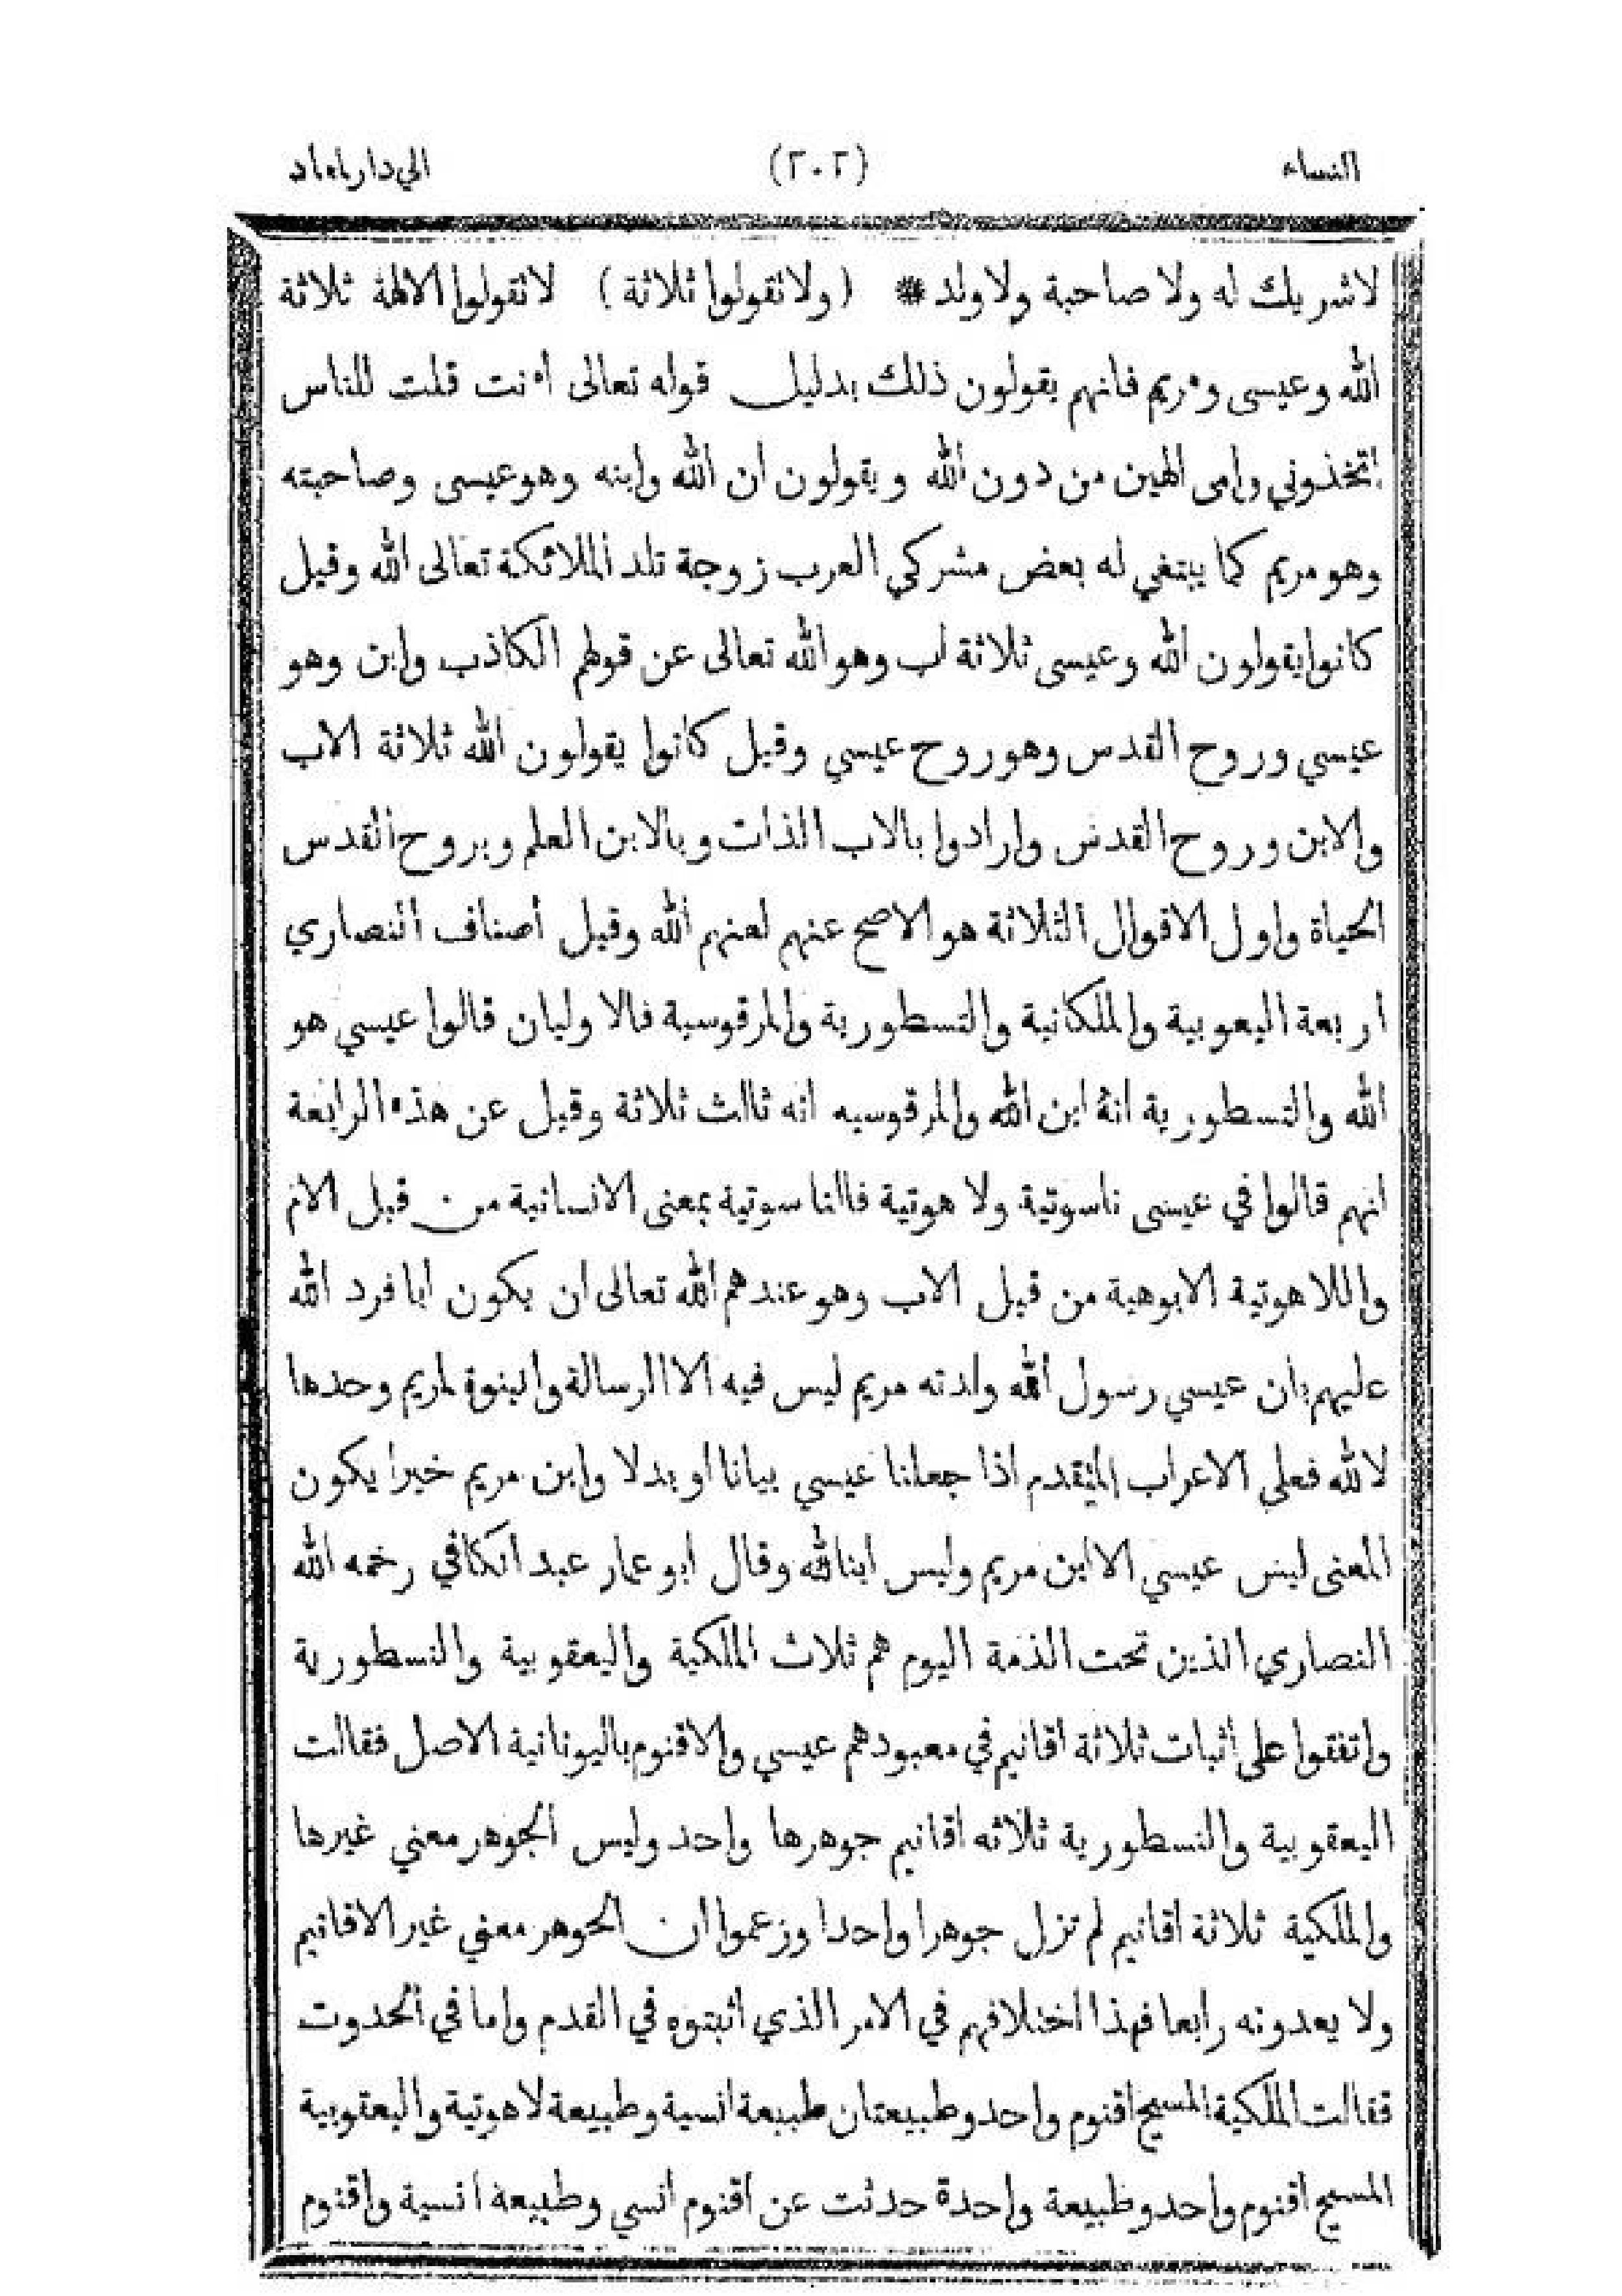 النساء (٢٠٢) الي دار
لاشريك له ولا صاحبة ولاولد * (ولاتقولوا ثلاثة) لاتقولوا الالهة ثلاثة
الله وعيسى ومريم فانهم يقولون ذلك بدليل قوله تعالى أءنت قلت للناس
اتخذوني وامى الهين من دون الله ويقولون ان الله وابنه وهو عيسى وصاحبته
وهو مريم كما يبتغي له بعض مشركي العرب زوجة تلد الملائكة تعالى الله وقيل
كانوا يقولون الله وعيسى ثلاثة اب وهو الله تعالى عن قولهم الكاذب وابن وهو
عيسي وروح القدس وهو روح عيسي وقيل كانوا يقولون الله ثلاثة الاب
والابن وروح القدس وارادوا بالاب الذات وبالابن العلم وبروح القدس
الحياة واول الاقوال الثلاثة هو الاصح عنهم لعنهم الله وقيل أصناف النصاري
اربعة اليعوبية والملكانية والنسطورية والمرقوسية فالاوليان قالوا عيسي هو
الله والنسطورية انه ابن الله والمرقوسيه انه ثالث ثلاثة وقيل عن هذه الرابعة
انهم قالوا في عيسى ناسوتية ولاهوتية فالناسوتية بمعنى الانسانية من قبل الام
واللاهوتية الابوهية من قبل الاب وهو عندهم الله تعالى ان يكون ابا فرد الله
عليهم بان عيسي رسول الله ولدته مريم ليس فيه الا الرسالة والبنوة لمريم وحدها
لا لله فعلى الاعراب المتقدم اذا جعلنا عيسي بيانا او بدلا وابن مريم خبرا يكون
المعنى ليس عيسي الا ابن مريم وليس ابنا لله وقال ابو عمار عبد الكافي رحمه الله
النصاري الذين تحت الذمة اليوم هم ثلاث الملكية واليعقوبية والنسطورية
واتفقوا على اثبات ثلاثة اقانيم في معبودهم عيسي والاقنوم باليونانية الاصل فقالت
اليعقوبية والنسطورية ثلاثه اقانيم جوهرها واحد وليس الجوهر معني غيرها
والملكية ثلاثة اقانيم لم تزل جوهرا واحدا وزعموا ان الجوهر معني غير الاقانيم
ولا يعدونه رابعا فهذا اختلافهم في الامر الذي اثبتوه في القدم واما في الحدوث
فقالت الملكية المسيح اقنوم واحد وطبيعتان طبيعة انسية وطبيعة لاهوتية واليعقوبية
المسيح اقنوم واحد وطبيعة واحدة حدثت عن اقنوم انسي وطبيعة انسية واقنوم